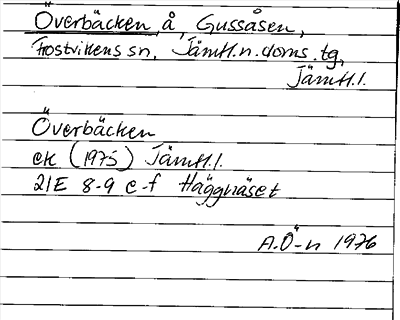 Överbäcken, å, Gussåsen,
Frostvikens sn, Jämtl.n.doms.tg,
Jämtl.l.
Överbäcken
ek (1975) Jämtl.l.
21E 8-9 e-f Häggnäset
A.Ö-n 1976